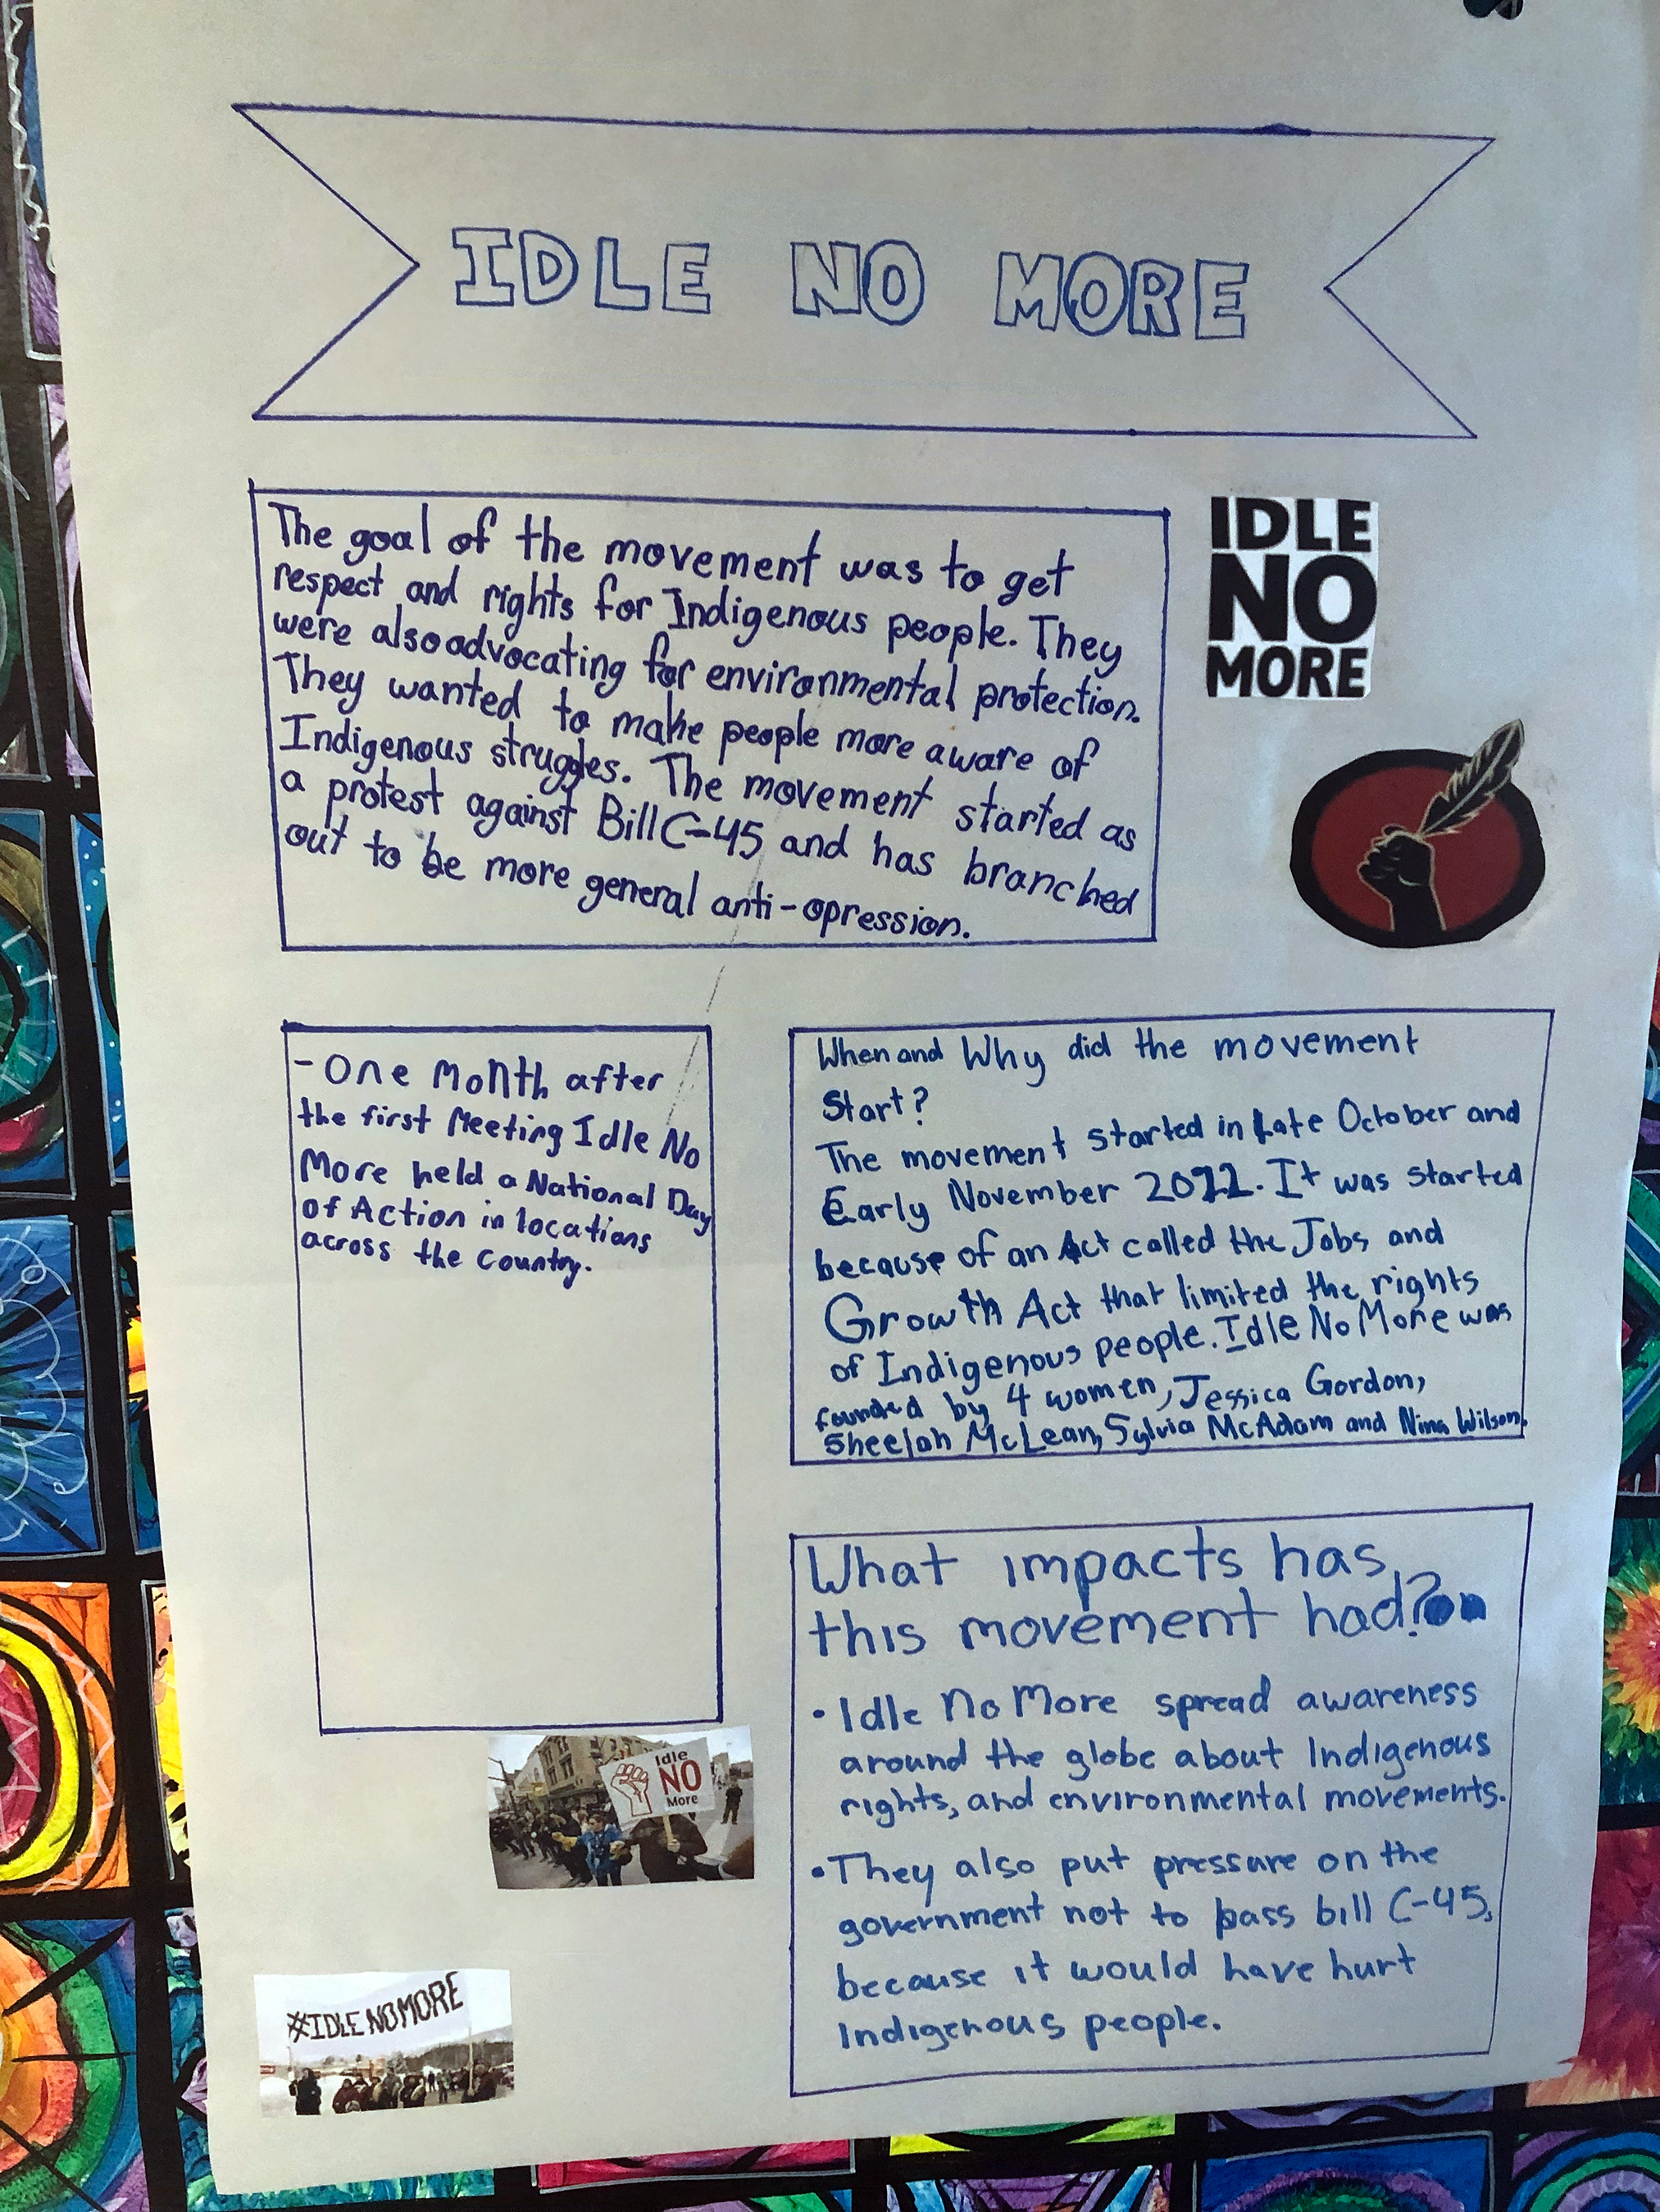 IDLE NO MORE
The goal of the movement was to get
respect and rights for Indigenous people. They
were also advocating for environmental protection.
They wanted to make people more aware of
Indigenous struggles. The movement started as
a protest against Bill C-45 and has branched
out to be more general anti-opression.
IDLE
NO
MORE
- One Month after
the first Meeting Idle No
More held a National Day
of Action in locations
across the country.
When and Why did the movement
Start?
The movement started in Late October and
Early November 2012. It was started
because of an Act called the Jobs and
Growth Act that limited the rights
of Indigenous people. Idle No More was
founded by 4 women, Jessica Gordon,
Sheelah McLean, Sylvia McAdam and Nina Wilson.
What impacts has
this movement had?
• Idle No More spread awareness
around the globe about Indigenous
rights, and environmental movements.
• They also put pressure on the
government not to pass bill C-45,
because it would have hurt
Indigenous people.
Idle
NO
More
#IDLENOMORE